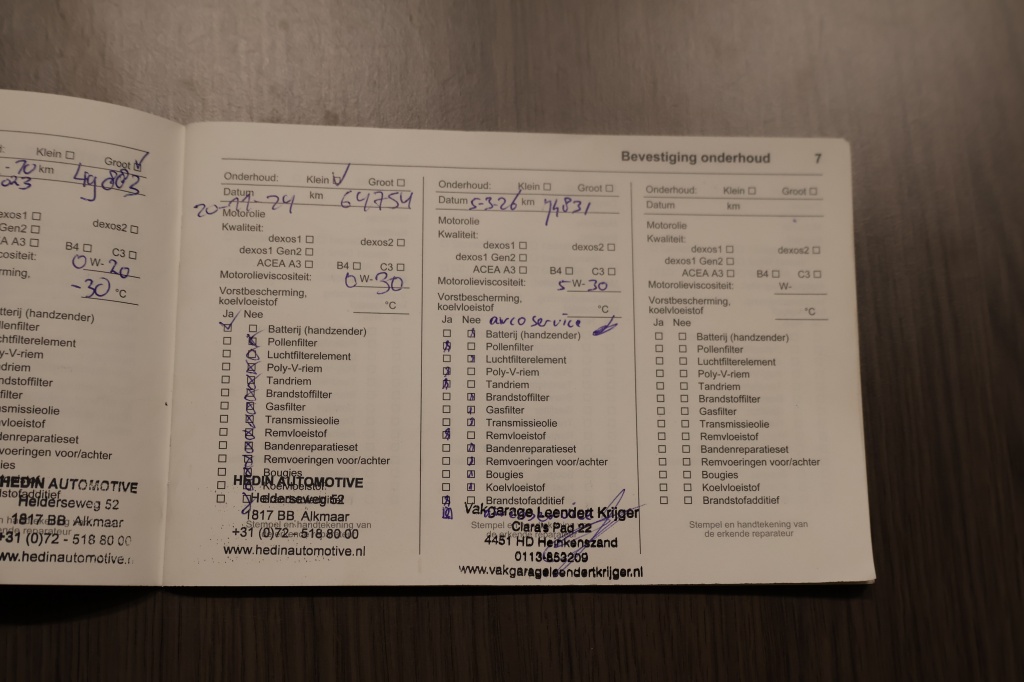 Klein Groot
km 49883
dexos1
dexos2
Gen2
ACEA A3 B4 C3
0 W- 20
-30 °C
Batterij (handzender)
Pollenfilter
Luchtfilterelement
Poly-V-riem
Tandriem
Brandstoffilter
Transmissieolie
Remvloeistof
Bandenreparatieset
Remvoeringen voor/achter
HEDIN AUTOMOTIVE
Helderseweg 52
1817 BB Alkmaar
+31 (0)72 - 518 80 00
www.hedinautomotive.
Bevestiging onderhoud 7
Onderhoud: Klein Groot
Datum 20-11-24 km 64754
Motorolie
Kwaliteit:
dexos1 dexos2
dexos1 Gen2
ACEA A3 B4 C3
Motorolieviscositeit: 0 W- 30
Vorstbescherming,
koelvloeistof °C
Ja Nee
Batterij (handzender)
Pollenfilter
Luchtfilterelement
Poly-V-riem
Tandriem
Brandstoffilter
Gasfilter
Transmissieolie
Remvloeistof
Bandenreparatieset
Remvoeringen voor/achter
Bougies
Koelvloeistof
HEDIN AUTOMOTIVE
Helderseweg 52
1817 BB Alkmaar
Stempel en handtekening van
+31 (0)72 - 518 80 00
www.hedinautomotive.nl
Onderhoud: Klein Groot
Datum 5-3-26 km 74831
Motorolie
Kwaliteit:
dexos1 dexos2
dexos1 Gen2
ACEA A3 B4 C3
Motorolieviscositeit: 5 W- 30
Vorstbescherming,
koelvloeistof °C
Ja Nee airco service
Batterij (handzender)
Pollenfilter
Luchtfilterelement
Poly-V-riem
Tandriem
Brandstoffilter
Gasfilter
Transmissieolie
Remvloeistof
Bandenreparatieset
Remvoeringen voor/achter
Bougies
Koelvloeistof
Brandstofadditief
Vakgarage Leendert Krijger
Stempel en handtekening van
Clara's Pad 22
de erkende reparateur
4451 HD Heinkenszand
0113-853209
www.vakgarageleendertkrijger.nl
Onderhoud: Klein Groot
Datum km
Motorolie
Kwaliteit:
dexos1 dexos2
dexos1 Gen2
ACEA A3 B4 C3
Motorolieviscositeit: W-
Vorstbescherming,
koelvloeistof °C
Ja Nee
Batterij (handzender)
Pollenfilter
Luchtfilterelement
Poly-V-riem
Tandriem
Brandstoffilter
Gasfilter
Transmissieolie
Remvloeistof
Bandenreparatieset
Remvoeringen voor/achter
Bougies
Koelvloeistof
Brandstofadditief
Stempel en handtekening van
de erkende reparateur